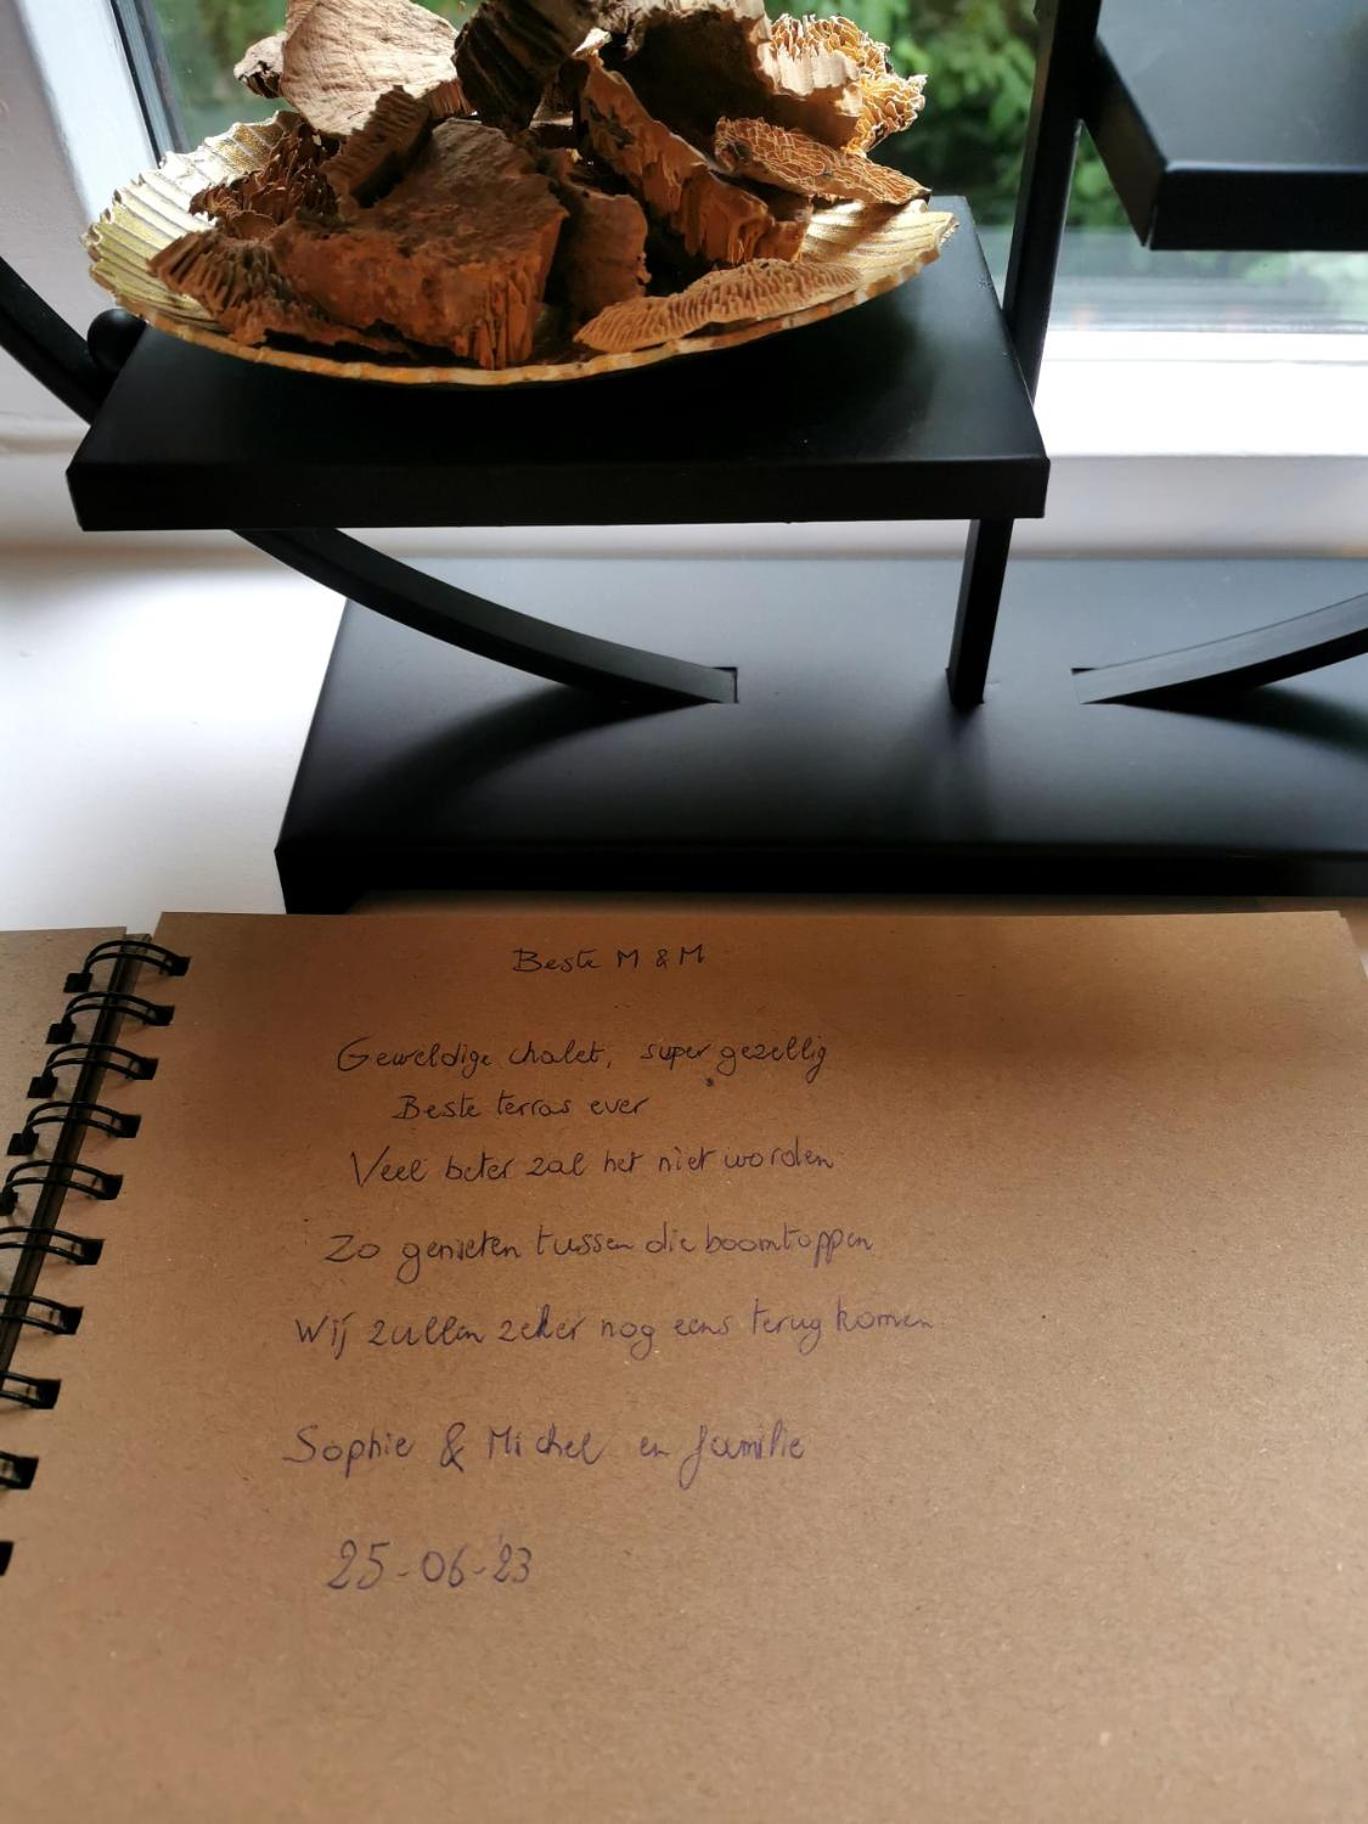 Beste M & M
Geweldige chalet, super gezellig
Beste terras ever
Veel beter zal het niet worden
Zo genieten tussen die boomtoppen
Wij zullen zeker nog eens terug komen
Sophie & Michel en familie
25-06-'23